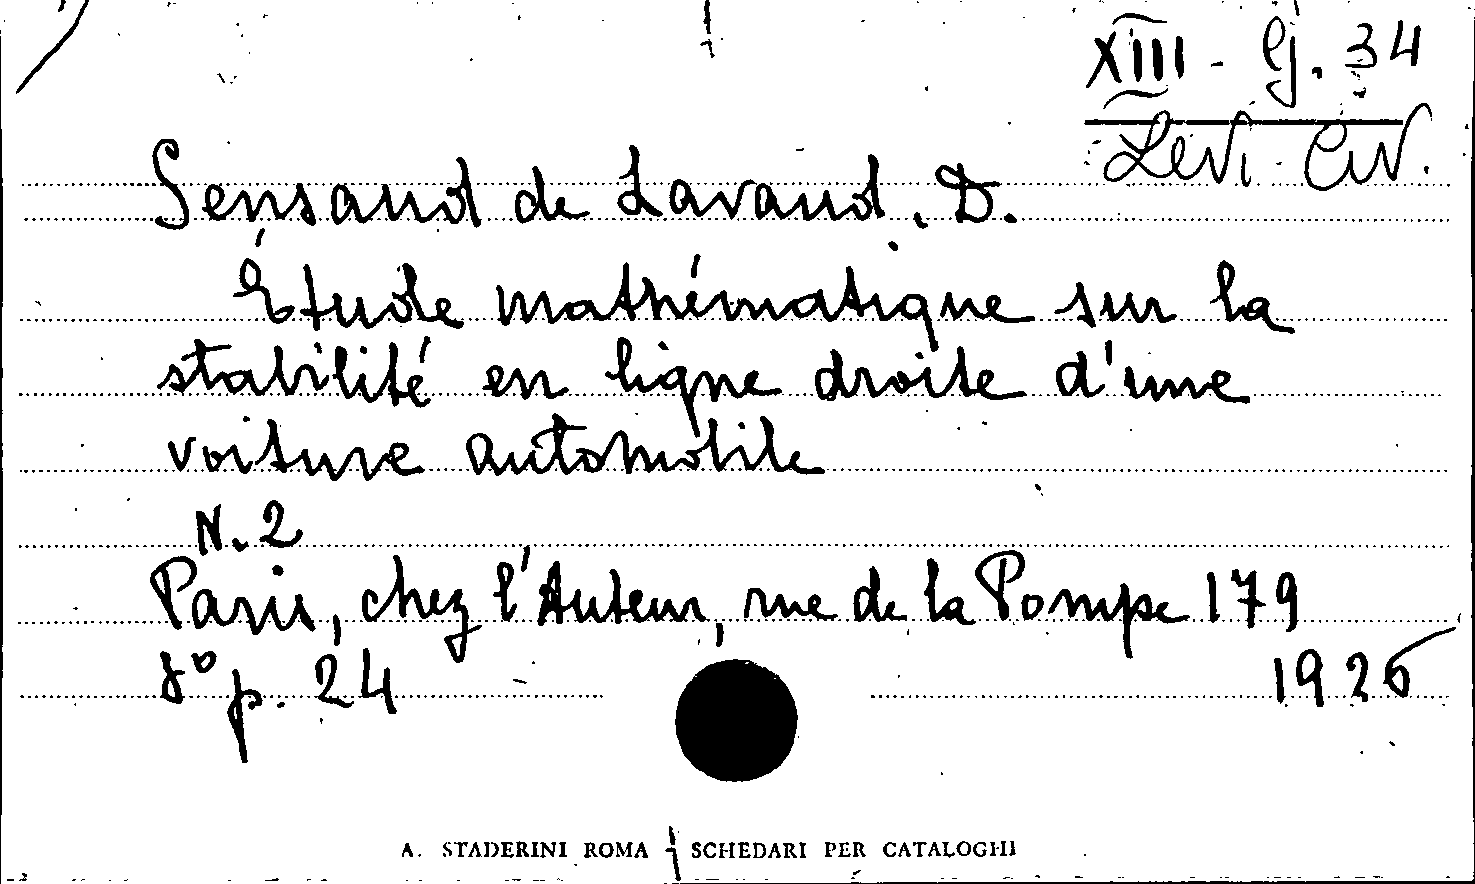 XIII - G. 34
Levi-Civ.
Sensaud de Lavaud. D.
Étude mathématique sur la
stabilité en ligne droite d'une
voiture automobile
N. 2
Paris, chez l'Auteur, rue de la Pompe 179
8° p. 24 1926
A. STADERINI ROMA SCHEDARI PER CATALOGHI